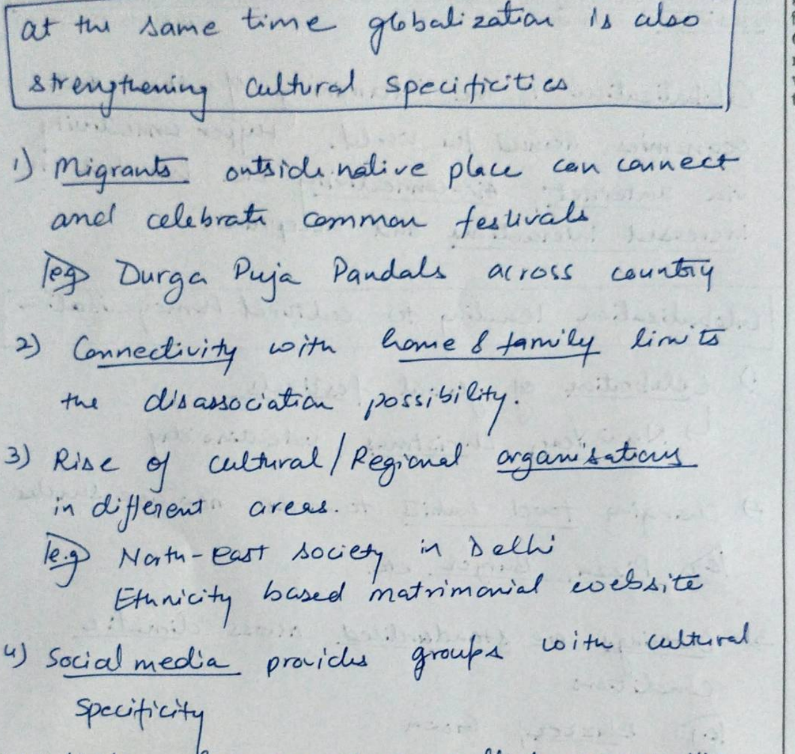 at the same time globalization is also
strengthening cultural specificities
1) Migrants outside native place can connect
and celebrate common festivals
eg Durga Puja Pandals across country
2) Connectivity with home & family limits
the disassociation possibility.
3) Rise of cultural/Regional organisations
in different areas.
e.g North-East society in Delhi
Ethnicity based matrimonial website
4) Social media provides groups with cultural
specificity